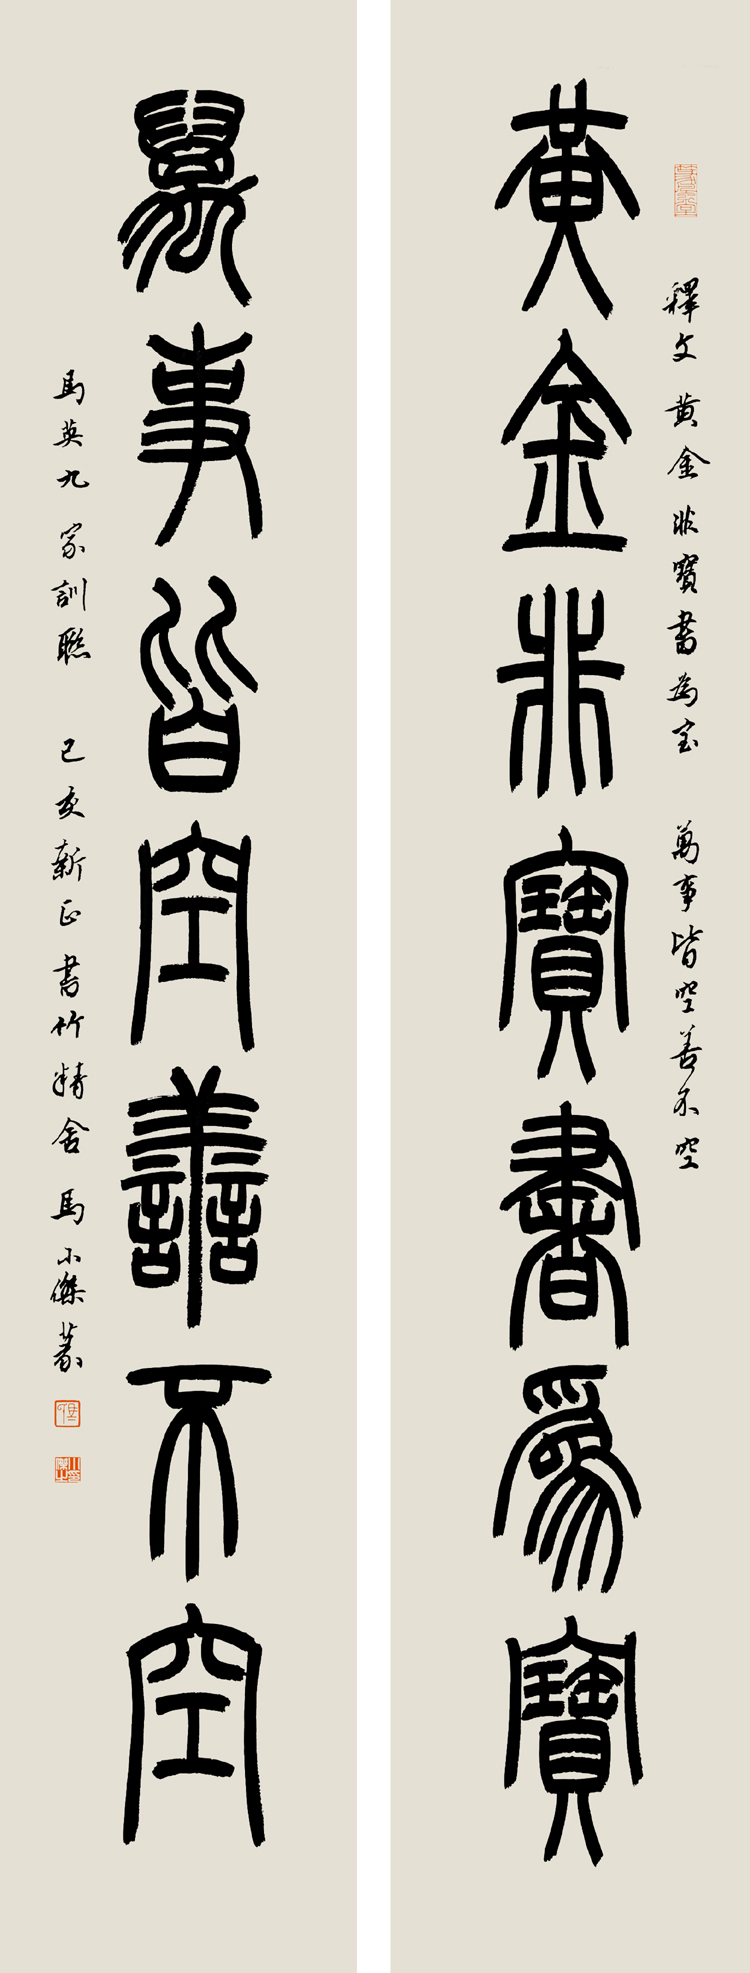 釋文 黃金非寶書為宝 萬事皆空善不空
黃金非寶書爲寶
萬事皆空善不空
馬英九 家訓聯 己亥新正 書竹精舍 馬小傑篆